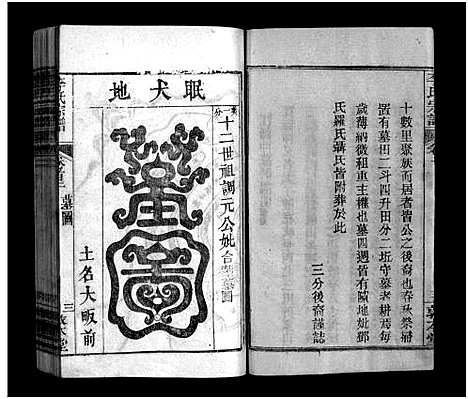 十數里聚族而居者皆公之後裔也春祭掃
置有墓田二斗四升田分二坵守墓者耕焉每
歲薄納微租重主權也墓四週皆有隙地妣鄧
氏羅氏聶氏皆附葬於此
三分後裔謹誌
眠犬地
十二世祖調元公妣合墓圖
土名大畈前
李氏宗譜
墓圖
三敦本堂